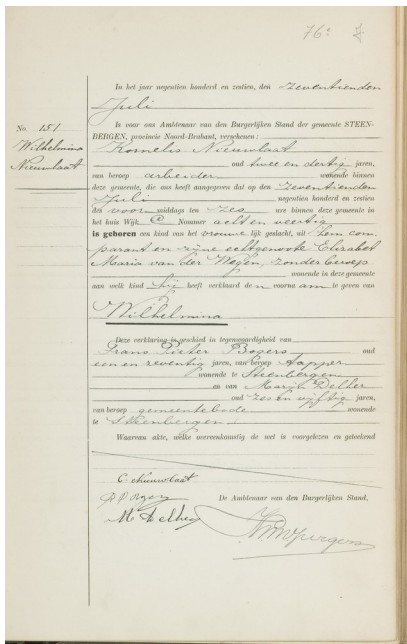 76
In het jaar negentien honderd en zestien, den zeventienden
Juli
Is voor ons Ambtenaar van den Burgerlijken Stand der gemeente STEEN-
BERGEN, provincie Noord-Brabant, verschenen:
No. 151
Wilhelmina
Nieuwlaat
Kornelis Nieuwlaat
oud twee en dertig jaren,
van beroep arbeider wonende binnen
deze gemeente, die ons heeft aangegeven dat op den zeventienden
Juli negentien honderd en zestien
des voormiddags ten zes ure binnen deze gemeente in
het huis Wijk Nommer acht en veertig
is geboren een kind van het vrouwelijk geslacht, uit hem com-
parant en zijne echtgenoote Elizabet
Maria van der Wegen, zonder beroep
wonende in deze gemeente
aan welk kind hij heeft verklaard den voornaam te geven van
Wilhelmina
Deze verklaring is geschied in tegenwoordigheid van
Frans Pieter Bogers oud
een en zeventig jaren, van beroep tapper
wonende te Steenbergen
en van Marijn Delhez
oud zes en vijftig jaren,
van beroep gemeentebode wonende
te Steenbergen.
Waarvan akte, welke overeenkomstig de wet is voorgelezen en geteekend
C. Nieuwlaat
De Ambtenaar van den Burgerlijken Stand,
M Delhez